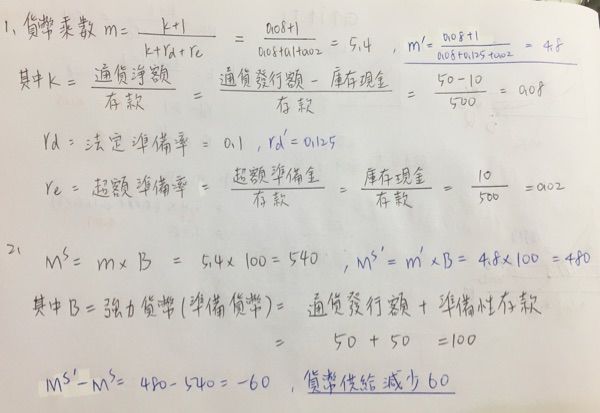 1、貨幣乘數 m = (k+1)/(k+rd+re) = (0.08+1)/(0.08+0.1+0.02) = 5.4 , m' = (0.08+1)/(0.08+0.125+0.02) = 4.8
其中 k = 通貨淨額/存款 = (通貨發行額 - 庫存現金)/存款 = (50-10)/500 = 0.08
rd = 法定準備率 = 0.1 , rd' = 0.125
re = 超額準備率 = 超額準備金/存款 = 庫存現金/存款 = 10/500 = 0.02
2、 M^S = m × B = 5.4 × 100 = 540 , M^S' = m' × B = 4.8 × 100 = 480
其中 B = 強力貨幣(準備貨幣) = 通貨發行額 + 準備性存款
= 50 + 50 = 100
M^S' - M^S = 480 - 540 = -60 , 貨幣供給減少60